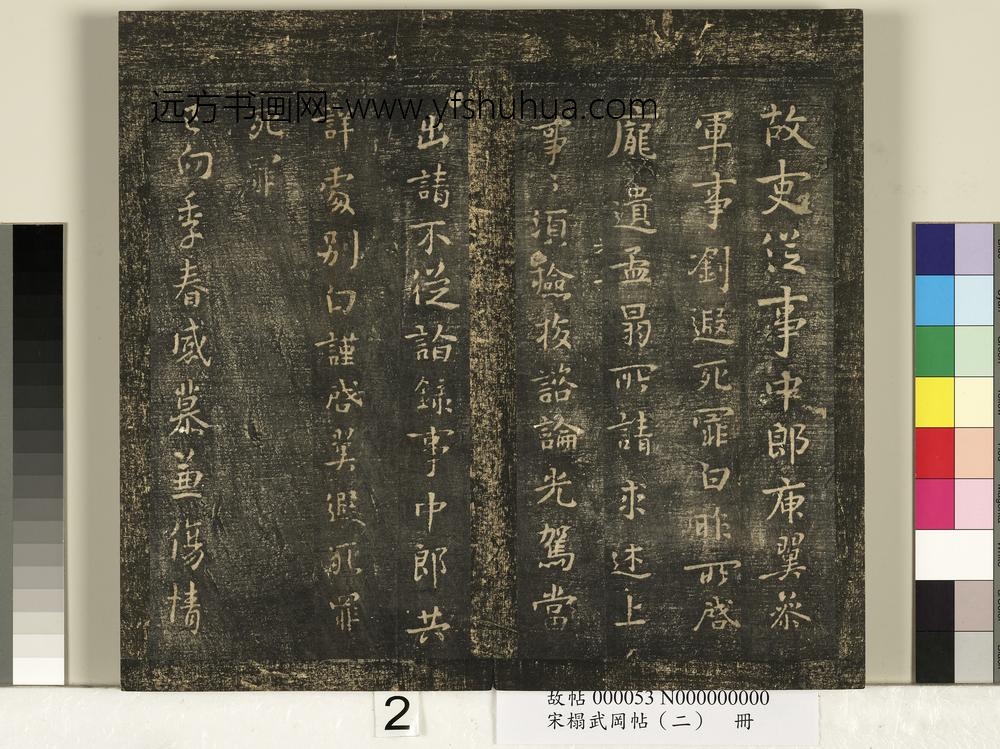 故吏從事中郎庾翼叅
軍事劉遐死罪白昨所啓
龐遺孟昜所請求述上
事〻須檢校諮論光駕當
出請不從詣錄事中郎共
詳處別白謹啓翼遐死罪
死罪
已向季春感慕兼傷情
远方书画网-www.yfshuhua.com
2
故帖 000053 N000000000
宋榻武岡帖（二） 冊